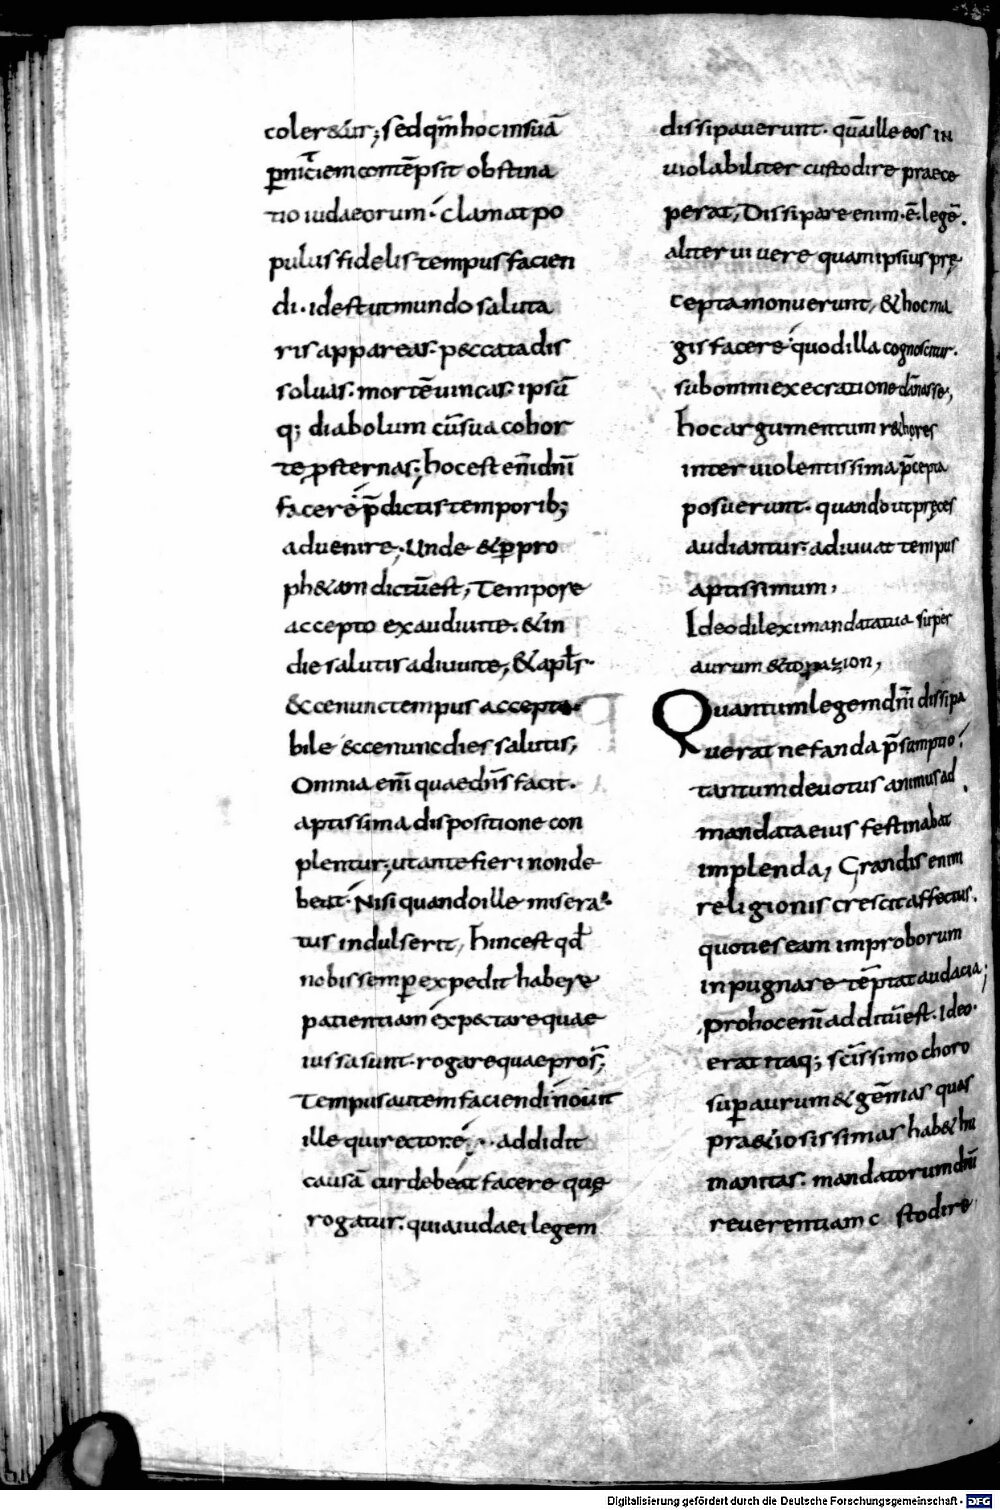 coler&ur; sed qm̄ hoc insuā
ꝑniciem contēpsit obstina
tio iudaeorum· clamat po
pulus fidelis tempus facien
di· id est ut mundo saluta
ris appareas· peccata dis
soluas· mortē uincas· ipsū
q; diabolum cū sua cohor
te ꝓsternas; hoc est enī dn̄i
facere p̄dictis temporib;
aduenire; Unde & ꝑ pro
ph&am dictū est, Tempore
accepto exaudiui te· & in
die salutis adiuui te; & apl̄s·
Ecce nunc tempus accepta
bile ecce nunc dies salutis,
Omnia enī quae dn̄s facit·
aptissima dispositione con
plentur; ut ante fieri non de
beat· Nisi quando ille misera
tus indulserit, hinc est qđ
nobis semꝑ expedit habere
patientiam expectare quae
iussa sunt· rogare quae pros̄;
Tempus autem faciendi nouit
ille qui rector ē; addidit
causā cur debeat facere quę
rogatur· quia iudaei legem
dissipauerunt· quā ille eos in
uiolabiliter custodire praece
perat, Dissipare enim· ē· legē·
aliter uiuere quam ipsius prę
cepta monuerunt, & hoc ma
gis facere quod illa cognoscitur·
sub omni execratione dānasse,
hoc argumentum r&hores
inter uiolentissima p̄cepta
posuerunt· quando ut pręces
audiantur· adiuuat tempus
aptissimum,
Ideo dilexi mandata tua super
aurum & topazion,
Quantum legem dn̄i dissipa
uerat nefanda p̄sumptio
tantum deuotus animus ad
mandata eius festinabat
implenda, Grandis enim
religionis crescit affectus·
quoties eam improborum
inpugnare tēptat audacia;
pro hoc enī additū est· Ideo·
erat itaq; scīssimo choro
suꝑ aurum & gēmas quas
praetiosissimas hab& hu
manitas· mandatorum dn̄i
reuerentiam c stodire